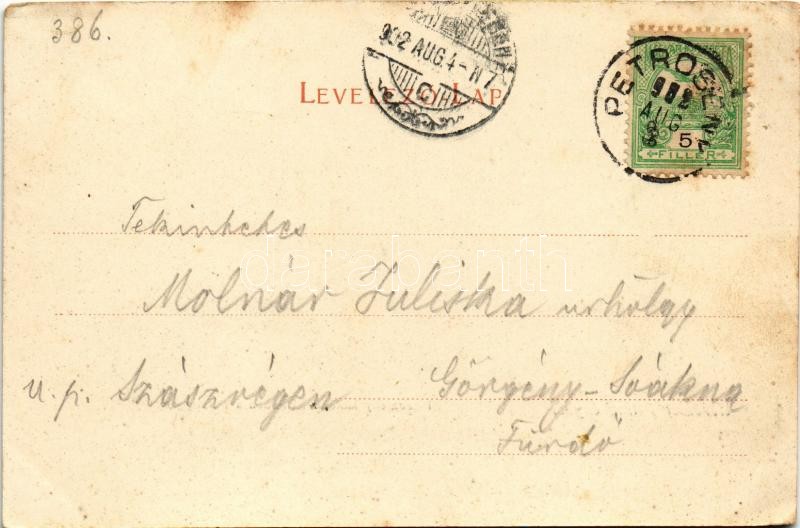 386.
902 AUG. 4
LEVELEZŐ-LAP
PETROSENY
AUG
5
FILLÉR
Tekintetes
Molnár Juliska urhölgy
u. p. Szászrégen Görgény-Sóakna
Fürdő
darabanth